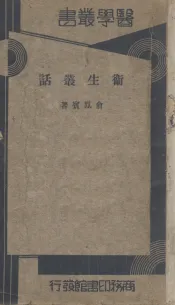 醫學叢書
衞生叢話
俞鳳賓著
商務印書館發行